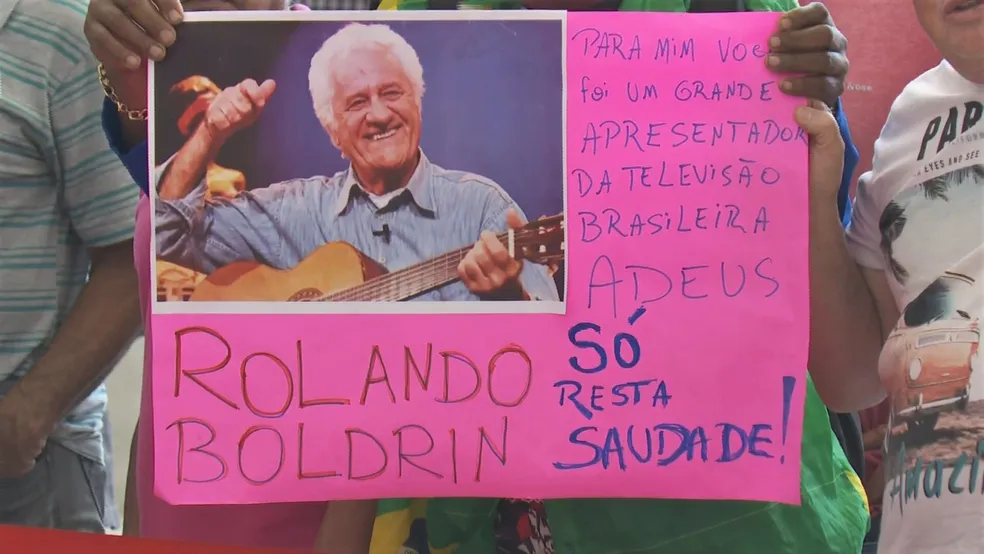 PARA MIM VOCÊ
foi UM GRANDE
APRESENTADOR
DA TELEVISÃO
BRASILEIRA
ADEUS
SÓ
RESTA
SAUDADE!
ROLANDO
BOLDRIN
EYES AND SEE